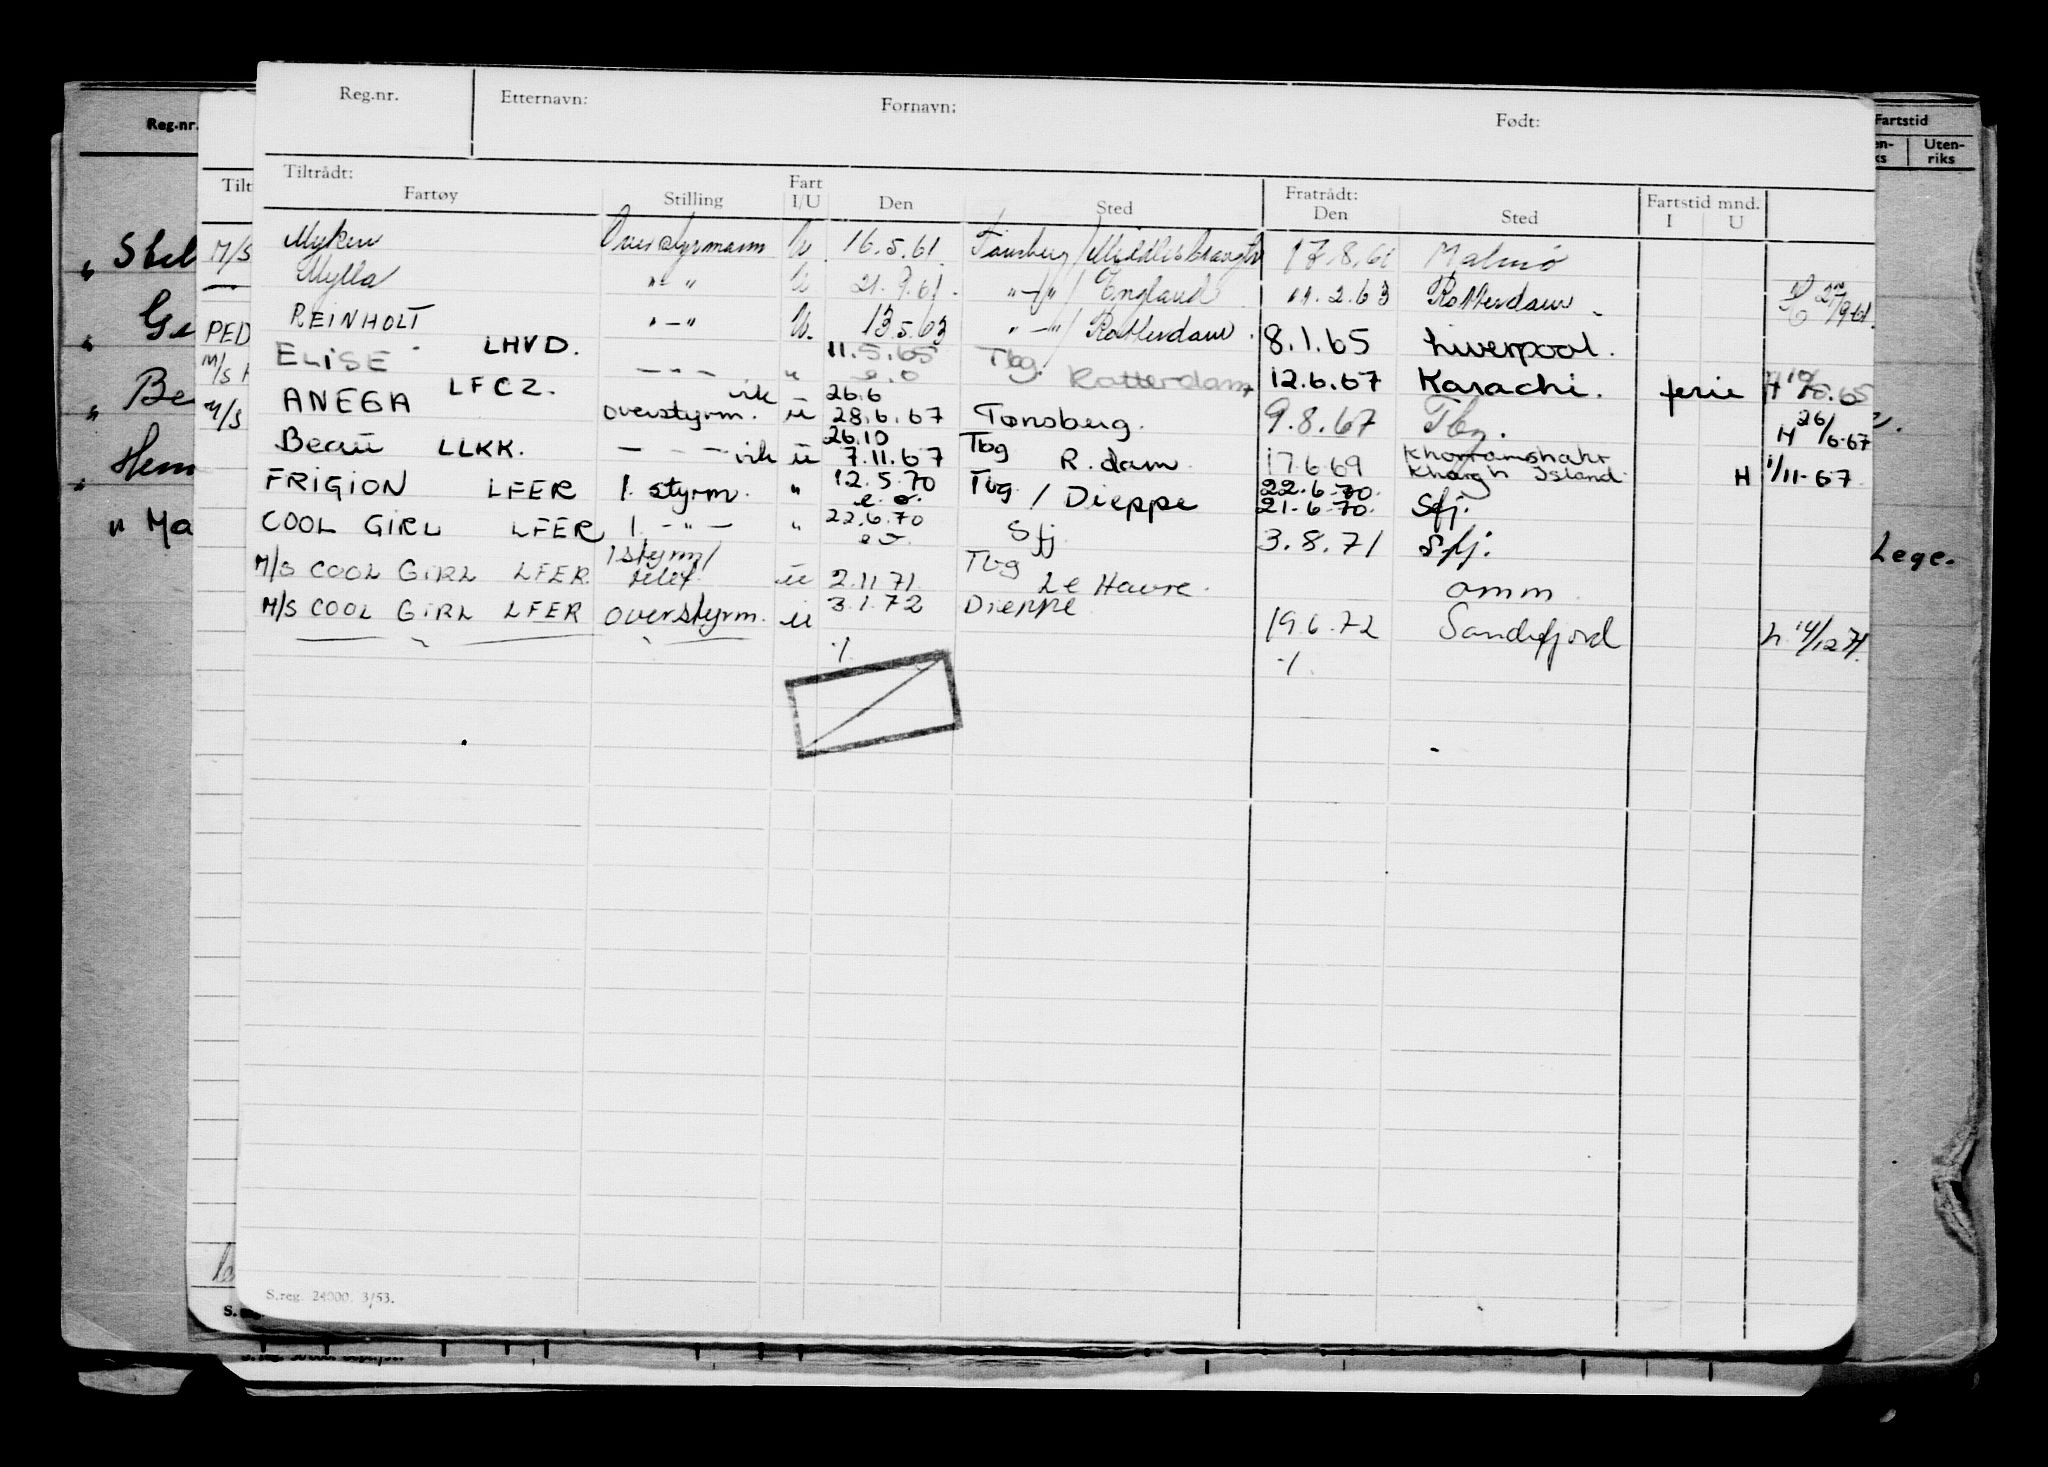 Reg.nr. Etternavn: Fornavn: Født:
Reg.nr. Fartstid
Uten-
riks
Tiltrådt: Fratrådt:
Fartøy Stilling Fart I/U Den Sted Den Sted Fartstid mnd. I U
Myken Overstyrmann U 16.5.61. Tønsberg / 17.8.61 Malmø
Mylla " - " U 21.9.61. " - " / England 11.2.63 Rotterdam
REINHOLT LHVD. " - " U. 13.5.63 " - " / Rotterdam. 8.1.65 Liverpool.
ELISE LFCZ. - " - " 11.5.65 e.o Tbg. Rotterdam 12.6.67 Karachi. ferie
ANEGA overstyrm. vik ü 26.6 28.6.67 Tønsberg. 9.8.67 Tbg. H 26/6-67
Beau LLKK. - - - vik ü 26.10 7.11.67 Tbg R.dam. 17.6.69 Khorramshahr Khargh Island. H 1/11-67
FRIGION LFER 1. styrm. " 12.5.70 e.o. Tbg. / Dieppe 22.6.70. 21.6.70. Sfj.
COOL GIRL LFER 1. - " - " 22.6.70 e.o. Sfj 3.8.71 Sfj.
M/S COOL GIRL LFER. 1styrm/ ü 2.11.71. Tbg Le Havre. omm.
M/S COOL GIRL LFER overstyrm. ü 3.1.72 Dieppe 19.6.72 Sandefjord h. 14/12 71.
·/. ·/.
" Ge
PED
" Be
M/S
" Ma
Lege.
S.reg. 24000. 3/53.